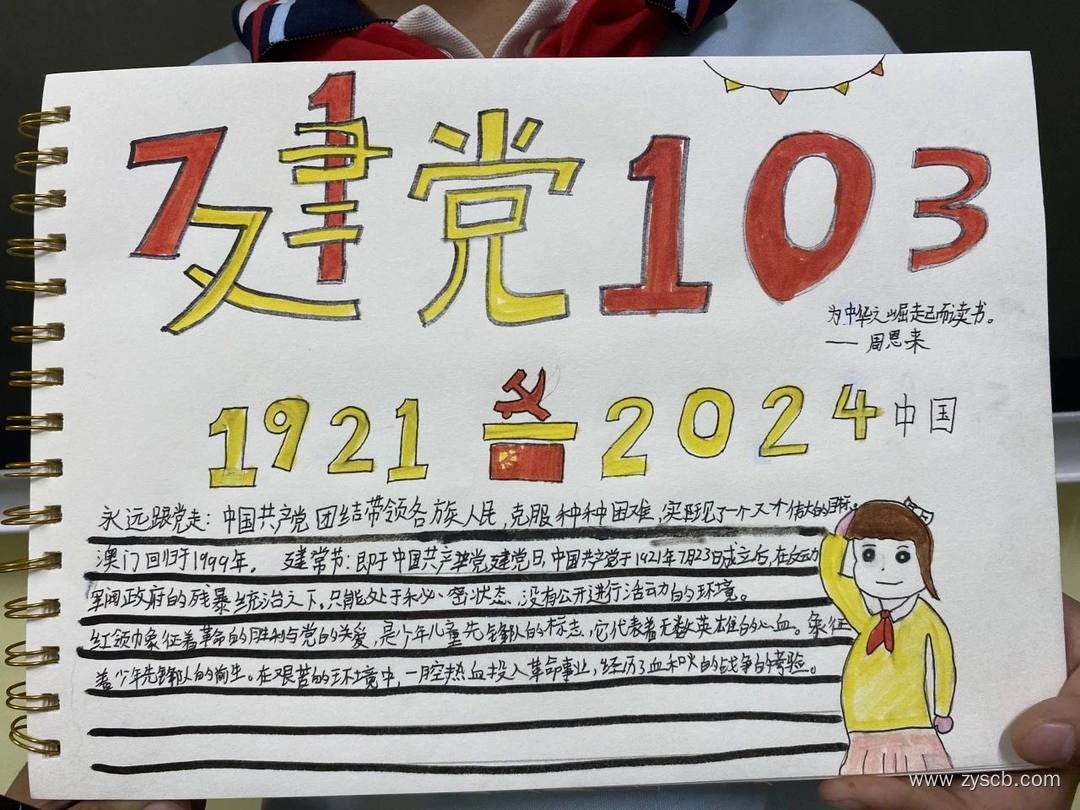 建党103
为中华之崛起而读书。
—— 周恩来
1921 2024中国
永远跟党走：中国共产党团结带领各族人民，克服种种困难，实现了一个又一个伟大的目标。
澳门回归于1999年。 建党节：即于中国共产党建党日，中国共产党于1921年7月23日成立后，在反动
军阀政府的残暴统治之下，只能处于秘密状态，没有公开进行活动的环境。
红领巾象征着革命的胜利与党的关爱，是少年儿童先锋队的标志，它代表着无数英雄的心血。象征
着少年先锋队的诞生。在艰苦的环境中，一腔热血投入革命事业，经历了血和火的战争的考验。
www.zyscb.com